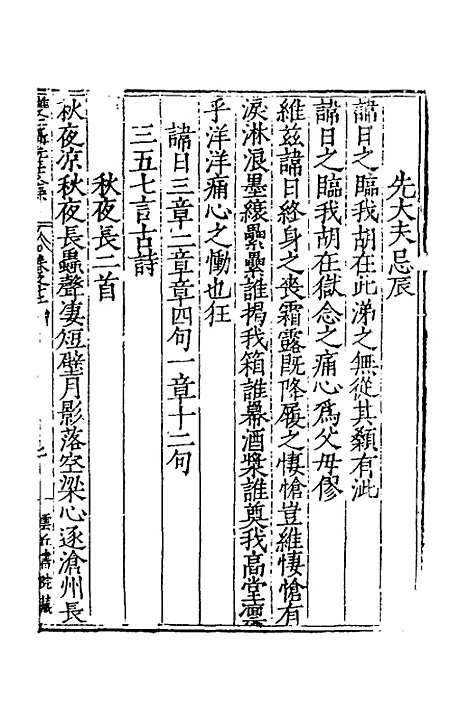 先大夫忌辰
諱日之臨我胡在此涕之無從其顙有泚
諱日之臨我胡在獄念之痛心為父母僇
維兹諱日終身之喪霜露既降履之悽愴豈維悽愴有
淚淋浪墨縗纍纍誰揭我箱誰冪酒漿誰奠我高堂凛
乎洋洋痛心之慟也狂
諱日三章二章章四句一章十二句
三五七言古詩
秋夜長二首
秋夜凉秋夜長蟲聲凄短壁月影落空梁心逐滄州長
雲丘書院藏